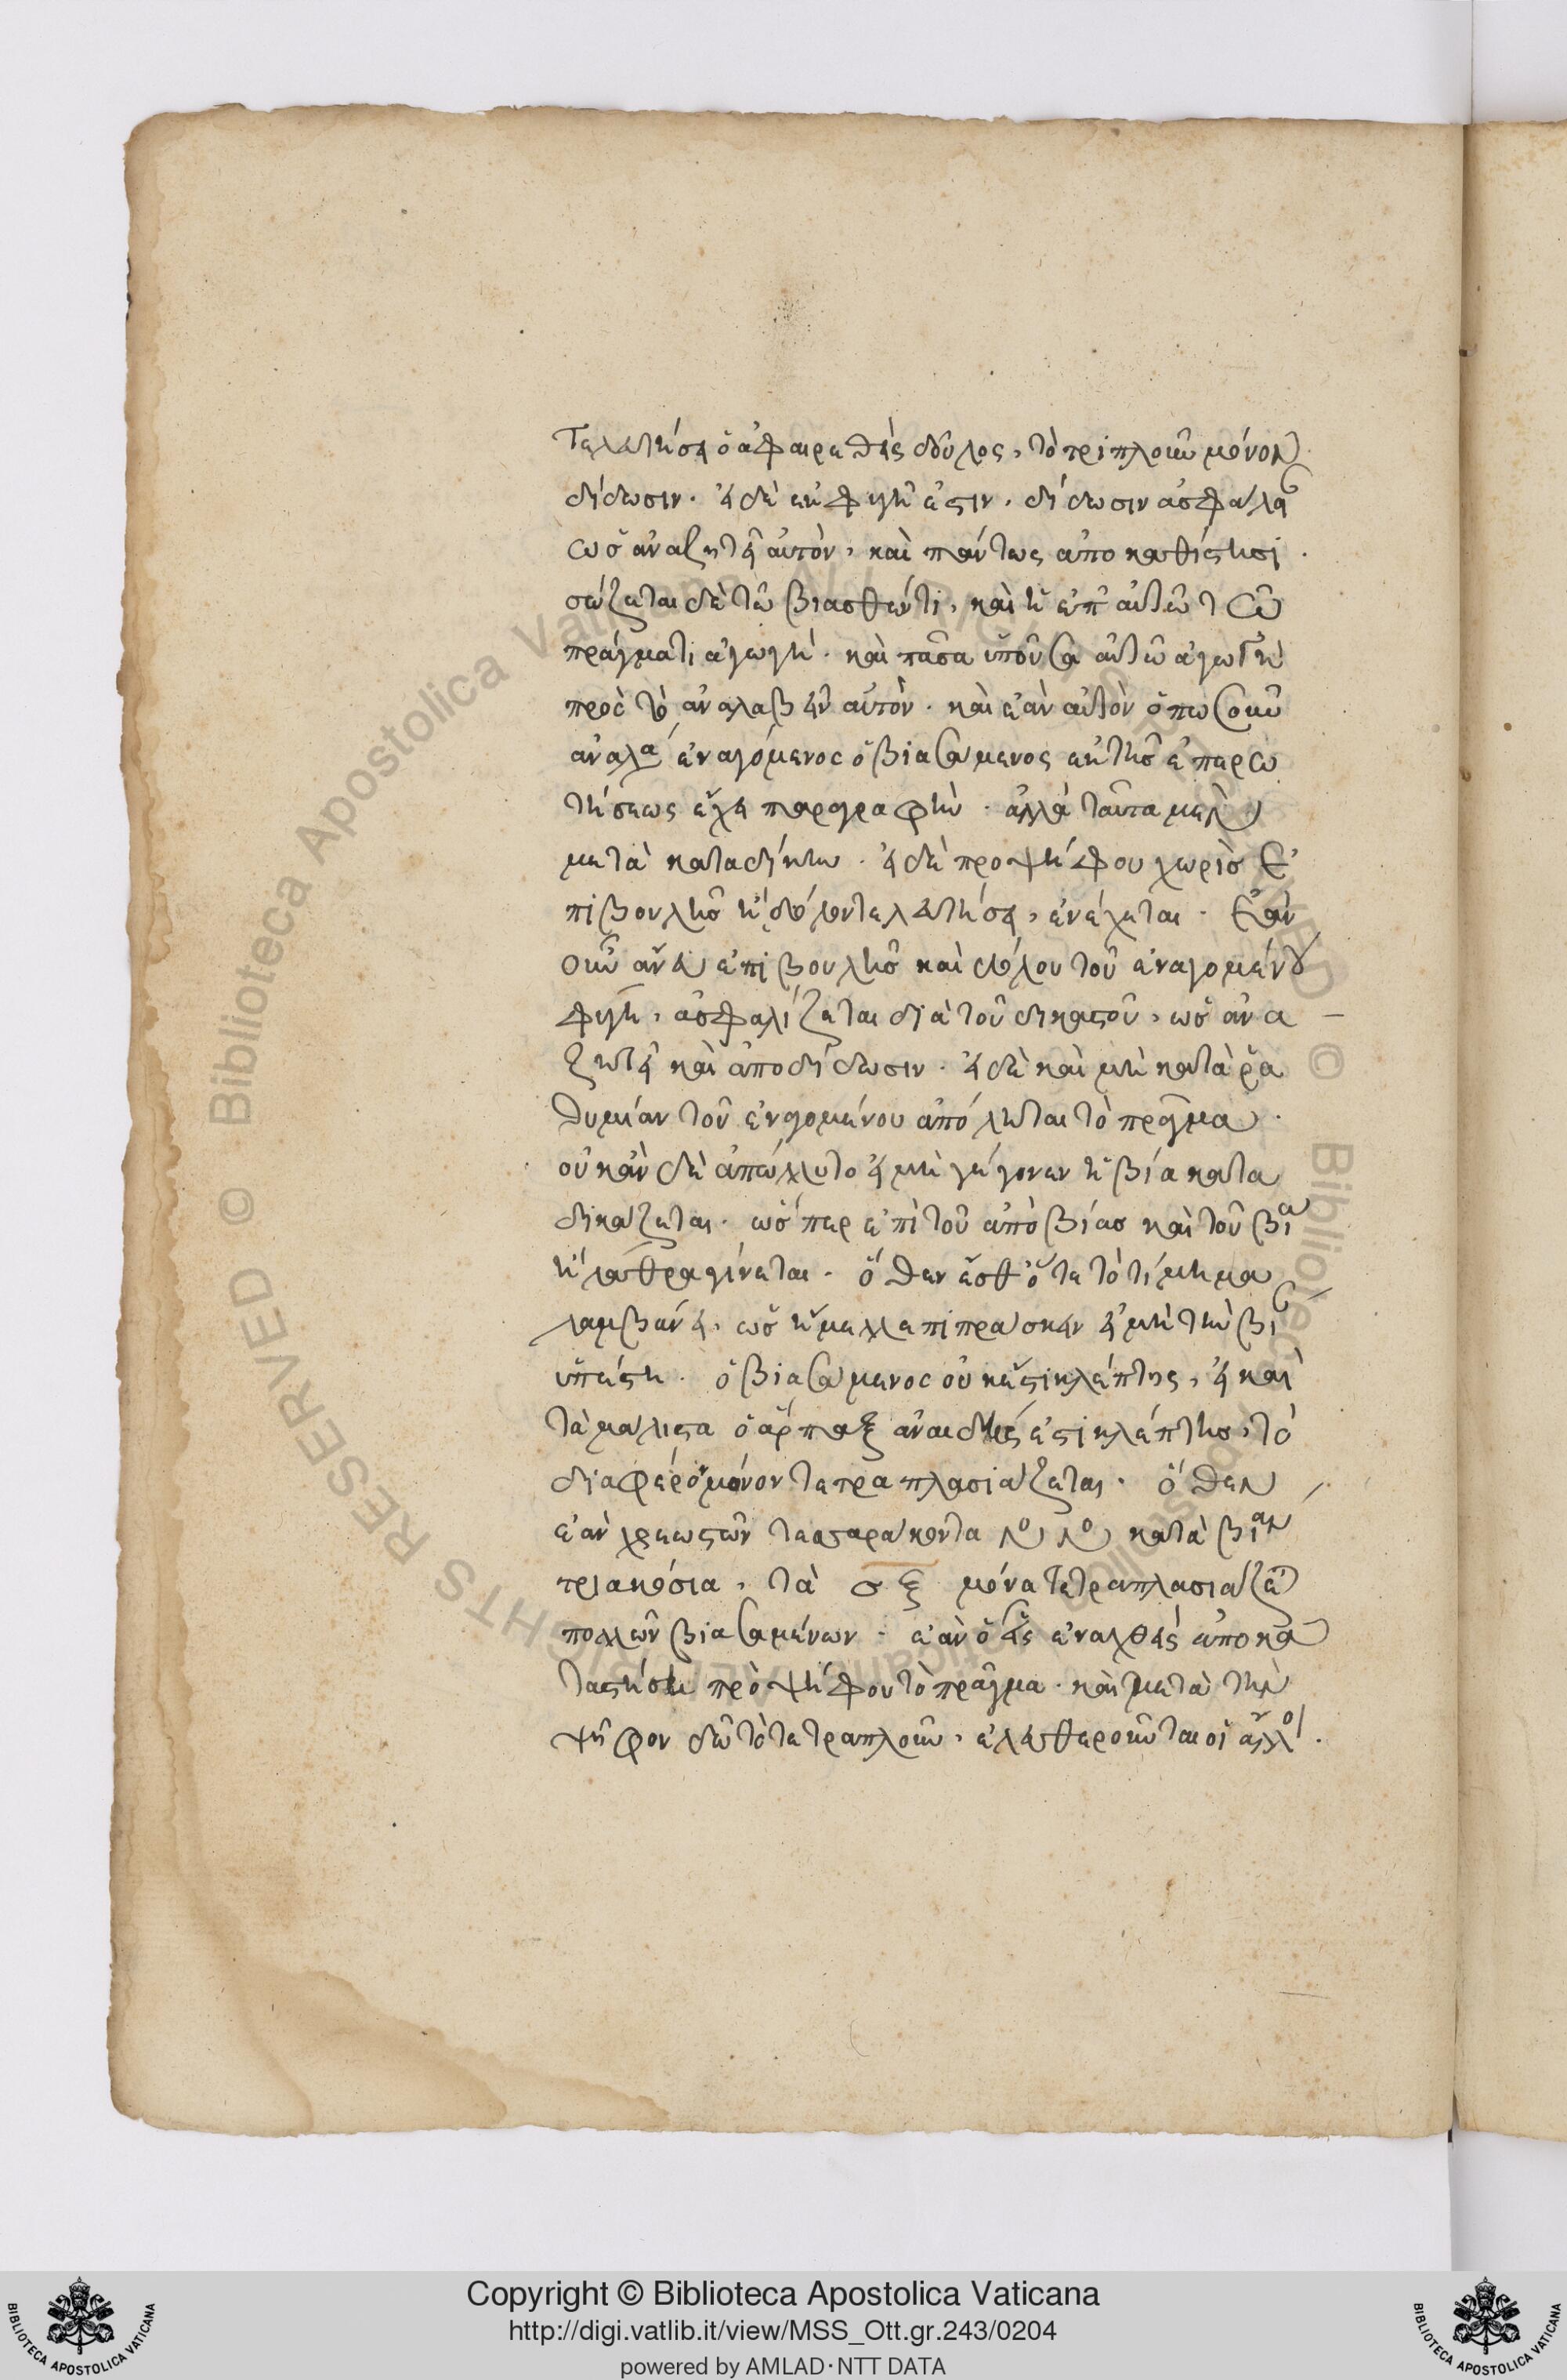 τελευτήσει ὁ ἀφαιρεθεὶς δοῦλος, τὸ τριπλοῦν μόνον
δίδωσιν. εἰ δὲ ἐν φυγῇ ἐστιν. δίδωσιν ἀσφάλεια
ὡς ἀναζητεῖ αὐτὸν, καὶ πάντως ἀποκαθίστησι.
σώζεται δὲ τῷ βιασθέντι, καὶ ἡ ἐπ' αὐτῷ τῷ
πράγματι ἀγωγή. καὶ πᾶσα ὑποῦσα αὐτῷ ἀγωγὴ
πρὸς τὸ ἀναλαβεῖν αὐτόν. καὶ ἐὰν αὐτὸν ὁπωσοῦν
ἀναλα ἐναγόμενος ὁ βιασάμενος ἐκ τῆς ἐπερω
τήσεως ἔχει παραγραφήν. ἀλλὰ ταῦτα μὲν
μετὰ καταδίκην. εἰ δὲ πρὸ ψήφου χωρὶς ἐ
πιβουλῆς τελευτήσει, ἐνέχεται. Ἐὰν
οὖν ἄνευ ἐπιβουλῆς καὶ δόλου τοῦ ἐναγομένου
φύγῃ, ἀσφαλίζεται διὰ τοῦ δικαστοῦ, ὡς ἀνα
ζητεῖ καὶ ἀποδίδωσιν. εἰ δὲ καὶ μὴ κατὰ ῥα
θυμίαν τοῦ ἐναγομένου ἀπόληται τὸ πρᾶγμα.
οὐκ ἂν δὲ ἀπώλλυτο εἰ μὴ γέγονεν ἡ βία κατα
δικάζεται. ὥσπερ ἐπὶ τοῦ ἀπὸ βίας καὶ τοῦ βία
ἢ λάθρα γίνεται. ὅθεν ἔσθ' ὅτε τὸ τίμημα
λαμβάνει, ὡς ἤμελλε πιπράσκειν εἰ μὴ τὴν βι
ὑπέστη. ὁ βιασάμενος οὐκ ἔστι κλέπτης, εἰ καὶ
τὰ μάλιστα ὁ ἅρπαξ ἀναιδής ἐστι κλέπτης, τὸ
διαφέρον μόνον τετραπλασιάζεται. ὅθεν
ἐὰν χρεωστῶν τεσσαράκοντα νο νο κατὰ βίαν
τριακόσια, τὰ σξ μόνα τετραπλασιάζε
πολλῶν βιασαμένων. ἐὰν ὁ εἷς ἐναχθεὶς ἀποκα
ταστήσῃ πρὸ ψήφου τὸ πρᾶγμα. καὶ μετὰ τὴν
ψῆφον δῷ τὸ τετραπλοῦν, ἐλευθεροῦνται οἱ ἄλλοι.
Copyright © Biblioteca Apostolica Vaticana
http://digi.vatlib.it/view/MSS_Ott.gr.243/0204
powered by AMLAD·NTT DATA